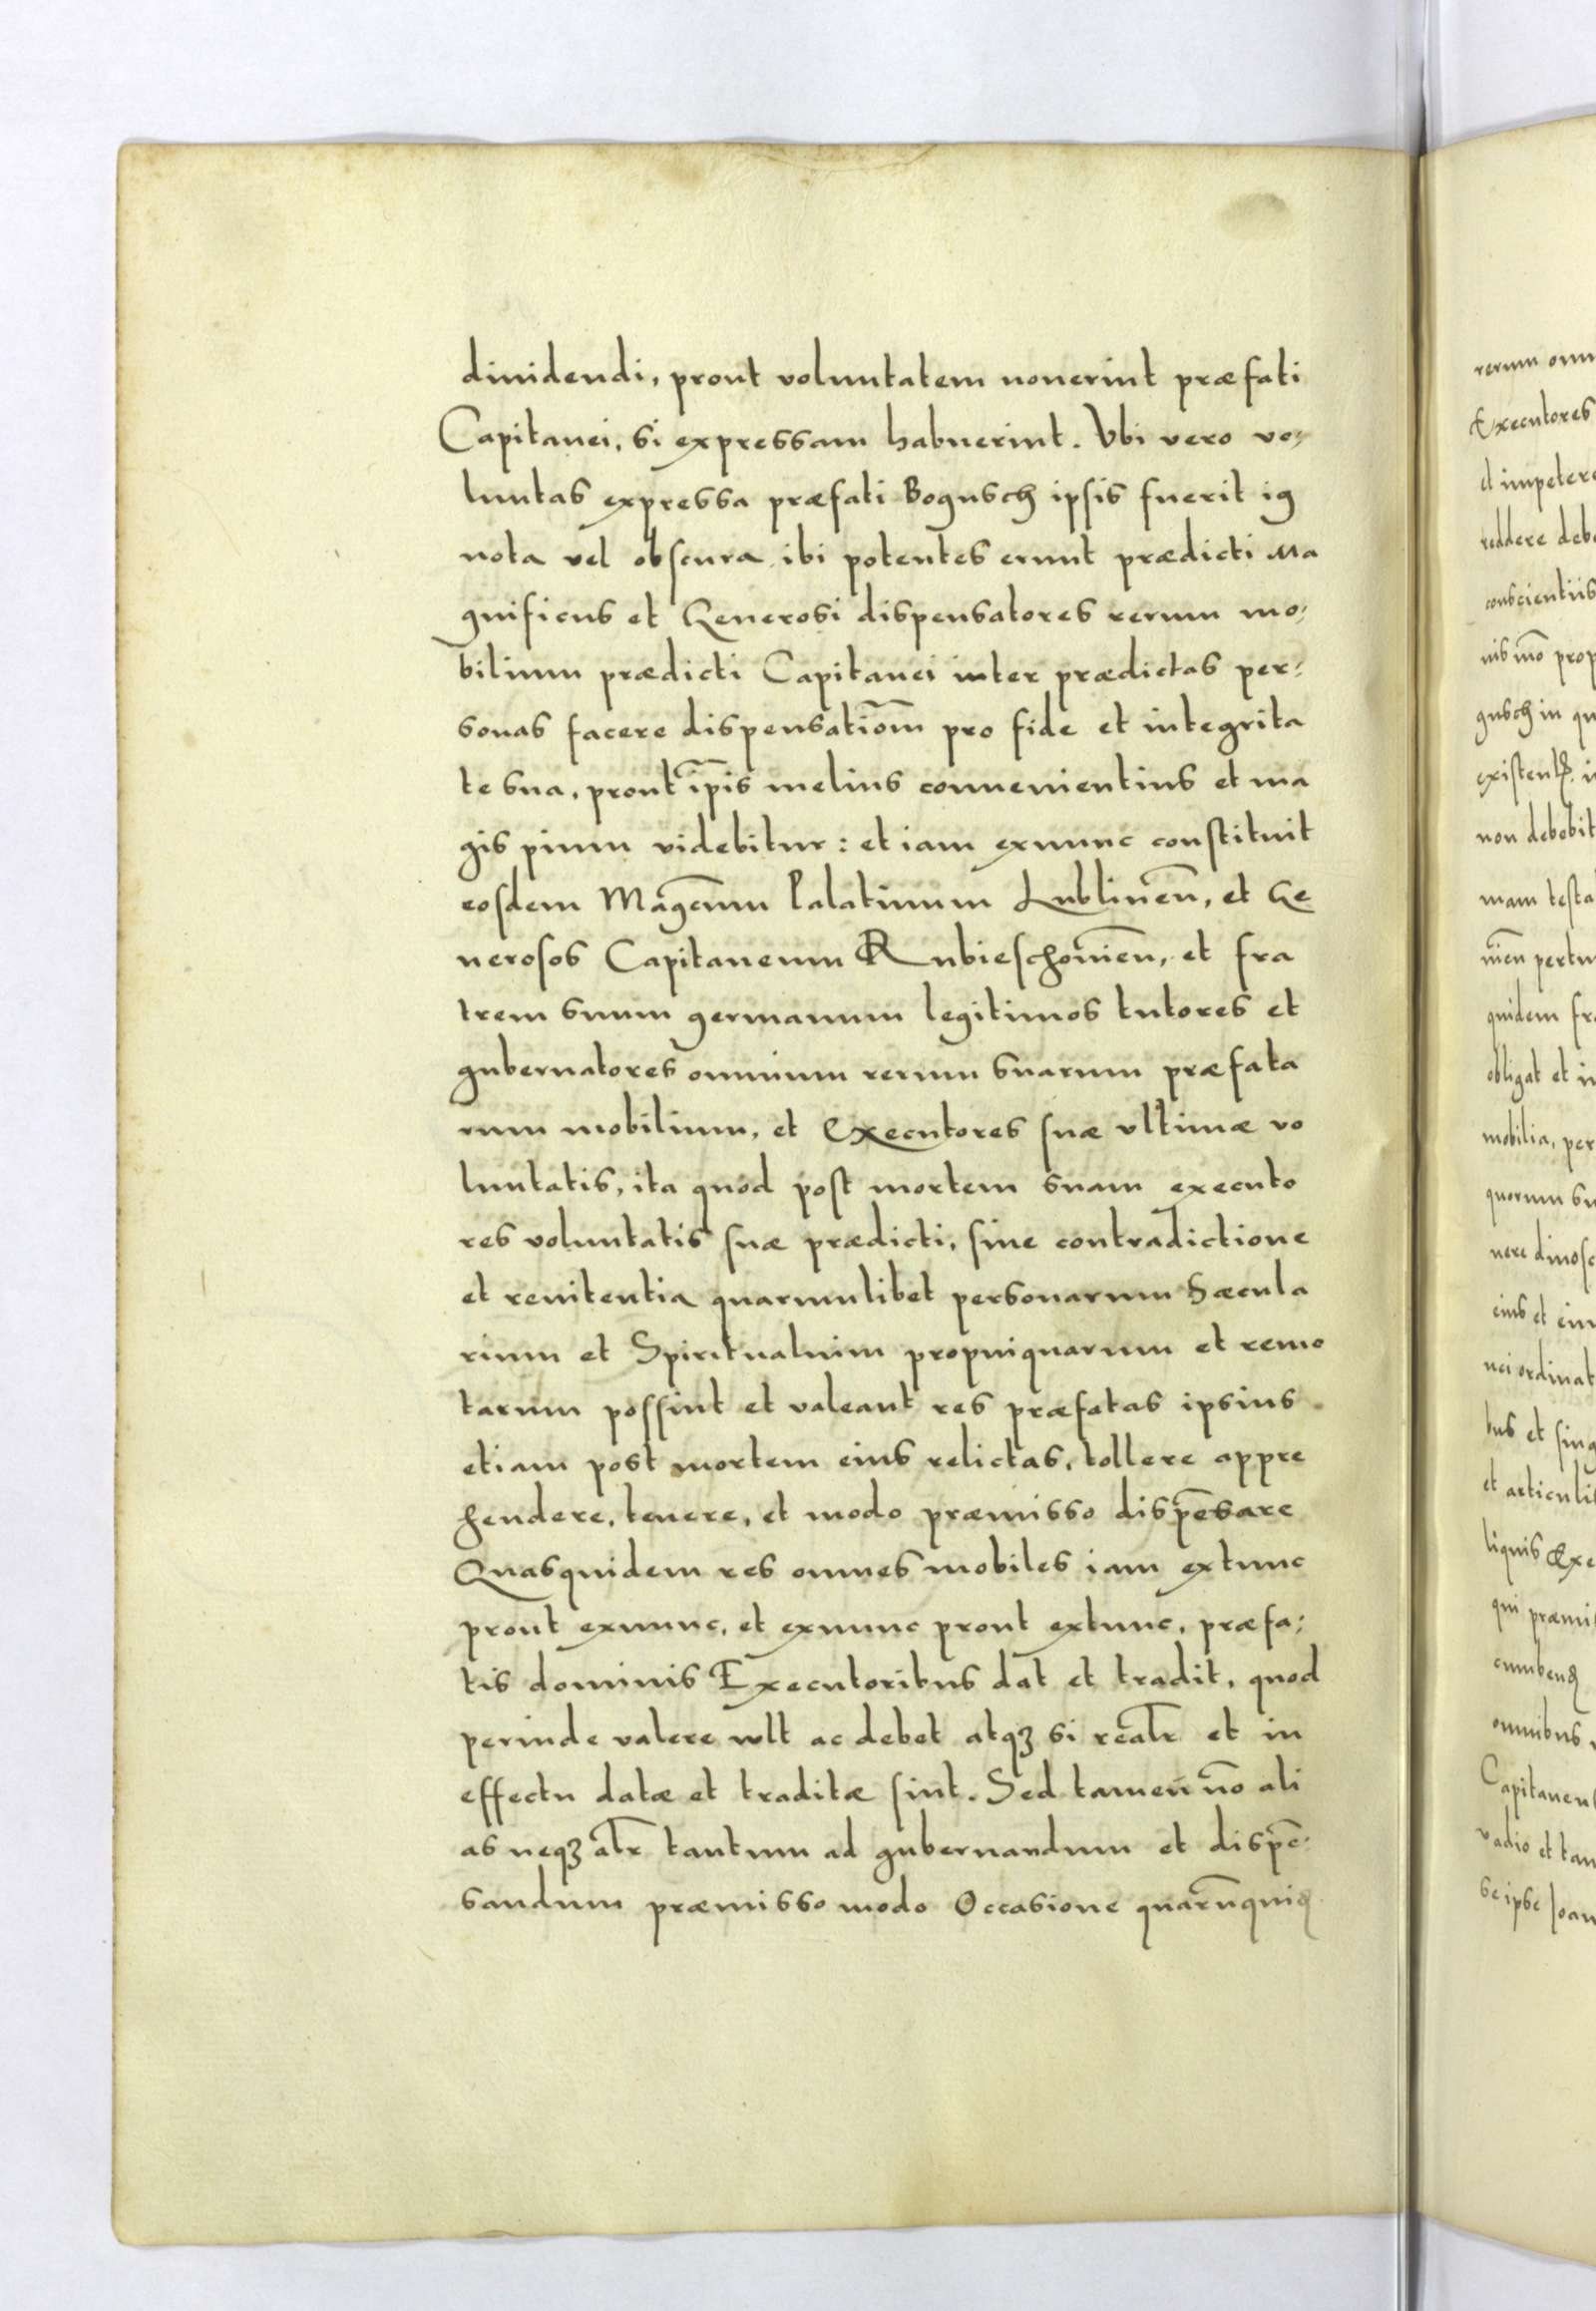 diuidendi, prout voluntatem nouerint præfati
Capitanei, si expressam habuerint. Vbi vero vo-
luntas expressa præfati Bogusch ipsis fuerit ig
nota vel obscura ibi potentes erunt prædicti Ma
gnificus et Generosi dispensatores rerum mo-
bilium prædicti Capitanei inter prædictas per-
sonas facere dispensatiõm pro fide et integrita
te sua, prout ip̃is melius conuenientius et ma
gis pium videbitur: et iam exnunc constituit
eosdem Mag̃cum Palatinum Lublineñ, et Ge
nerosos Capitaneum Rubieschouieñ, et fra
trem suum germanum legitimos tutores et
gubernatores omnium rerum suarum præfata
rum mobilium, et Executores suæ vltimæ vo
luntatis, ita quod post mortem suam executo
res voluntatis suæ prædicti, sine contradictione
et renitentia quarumlibet personarum Sæcula
rium et Spiritualium propinquarum et remo
tarum possint et valeant res præfatas ipsius
etiam post mortem eius relictas, tollere appre
hendere, tenere, et modo præmisso disp̃esare
Quasquidem res omnes mobiles iam extunc
prout exnunc, et exnunc prout extunc, præfa-
tis dominis Executoribus dat et tradit, quod
perinde valere wlt ac debet atqꝫ si realr̃ et in
effectu datæ et traditæ sint. Sed tamen nõ ali
as neqꝫ alr̃ tantum ad gubernandum et dispẽ-
sandum præmisso modo Occasione
rerum
Executores
et impetere
reddere
conscientiis
mõ
gusch in
non debebit
mam
quidem
obligat et
mobilia, per
quorum
eius et
bus et
et articuli
omnibus
vadio et
se ipse